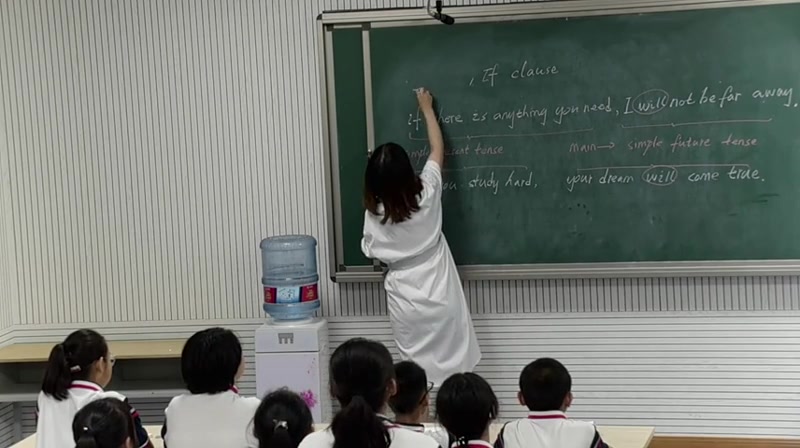 , If clause
If there is anything you need, I will not be far away.
present tense main → simple future tense
you study hard, your dream will come true.